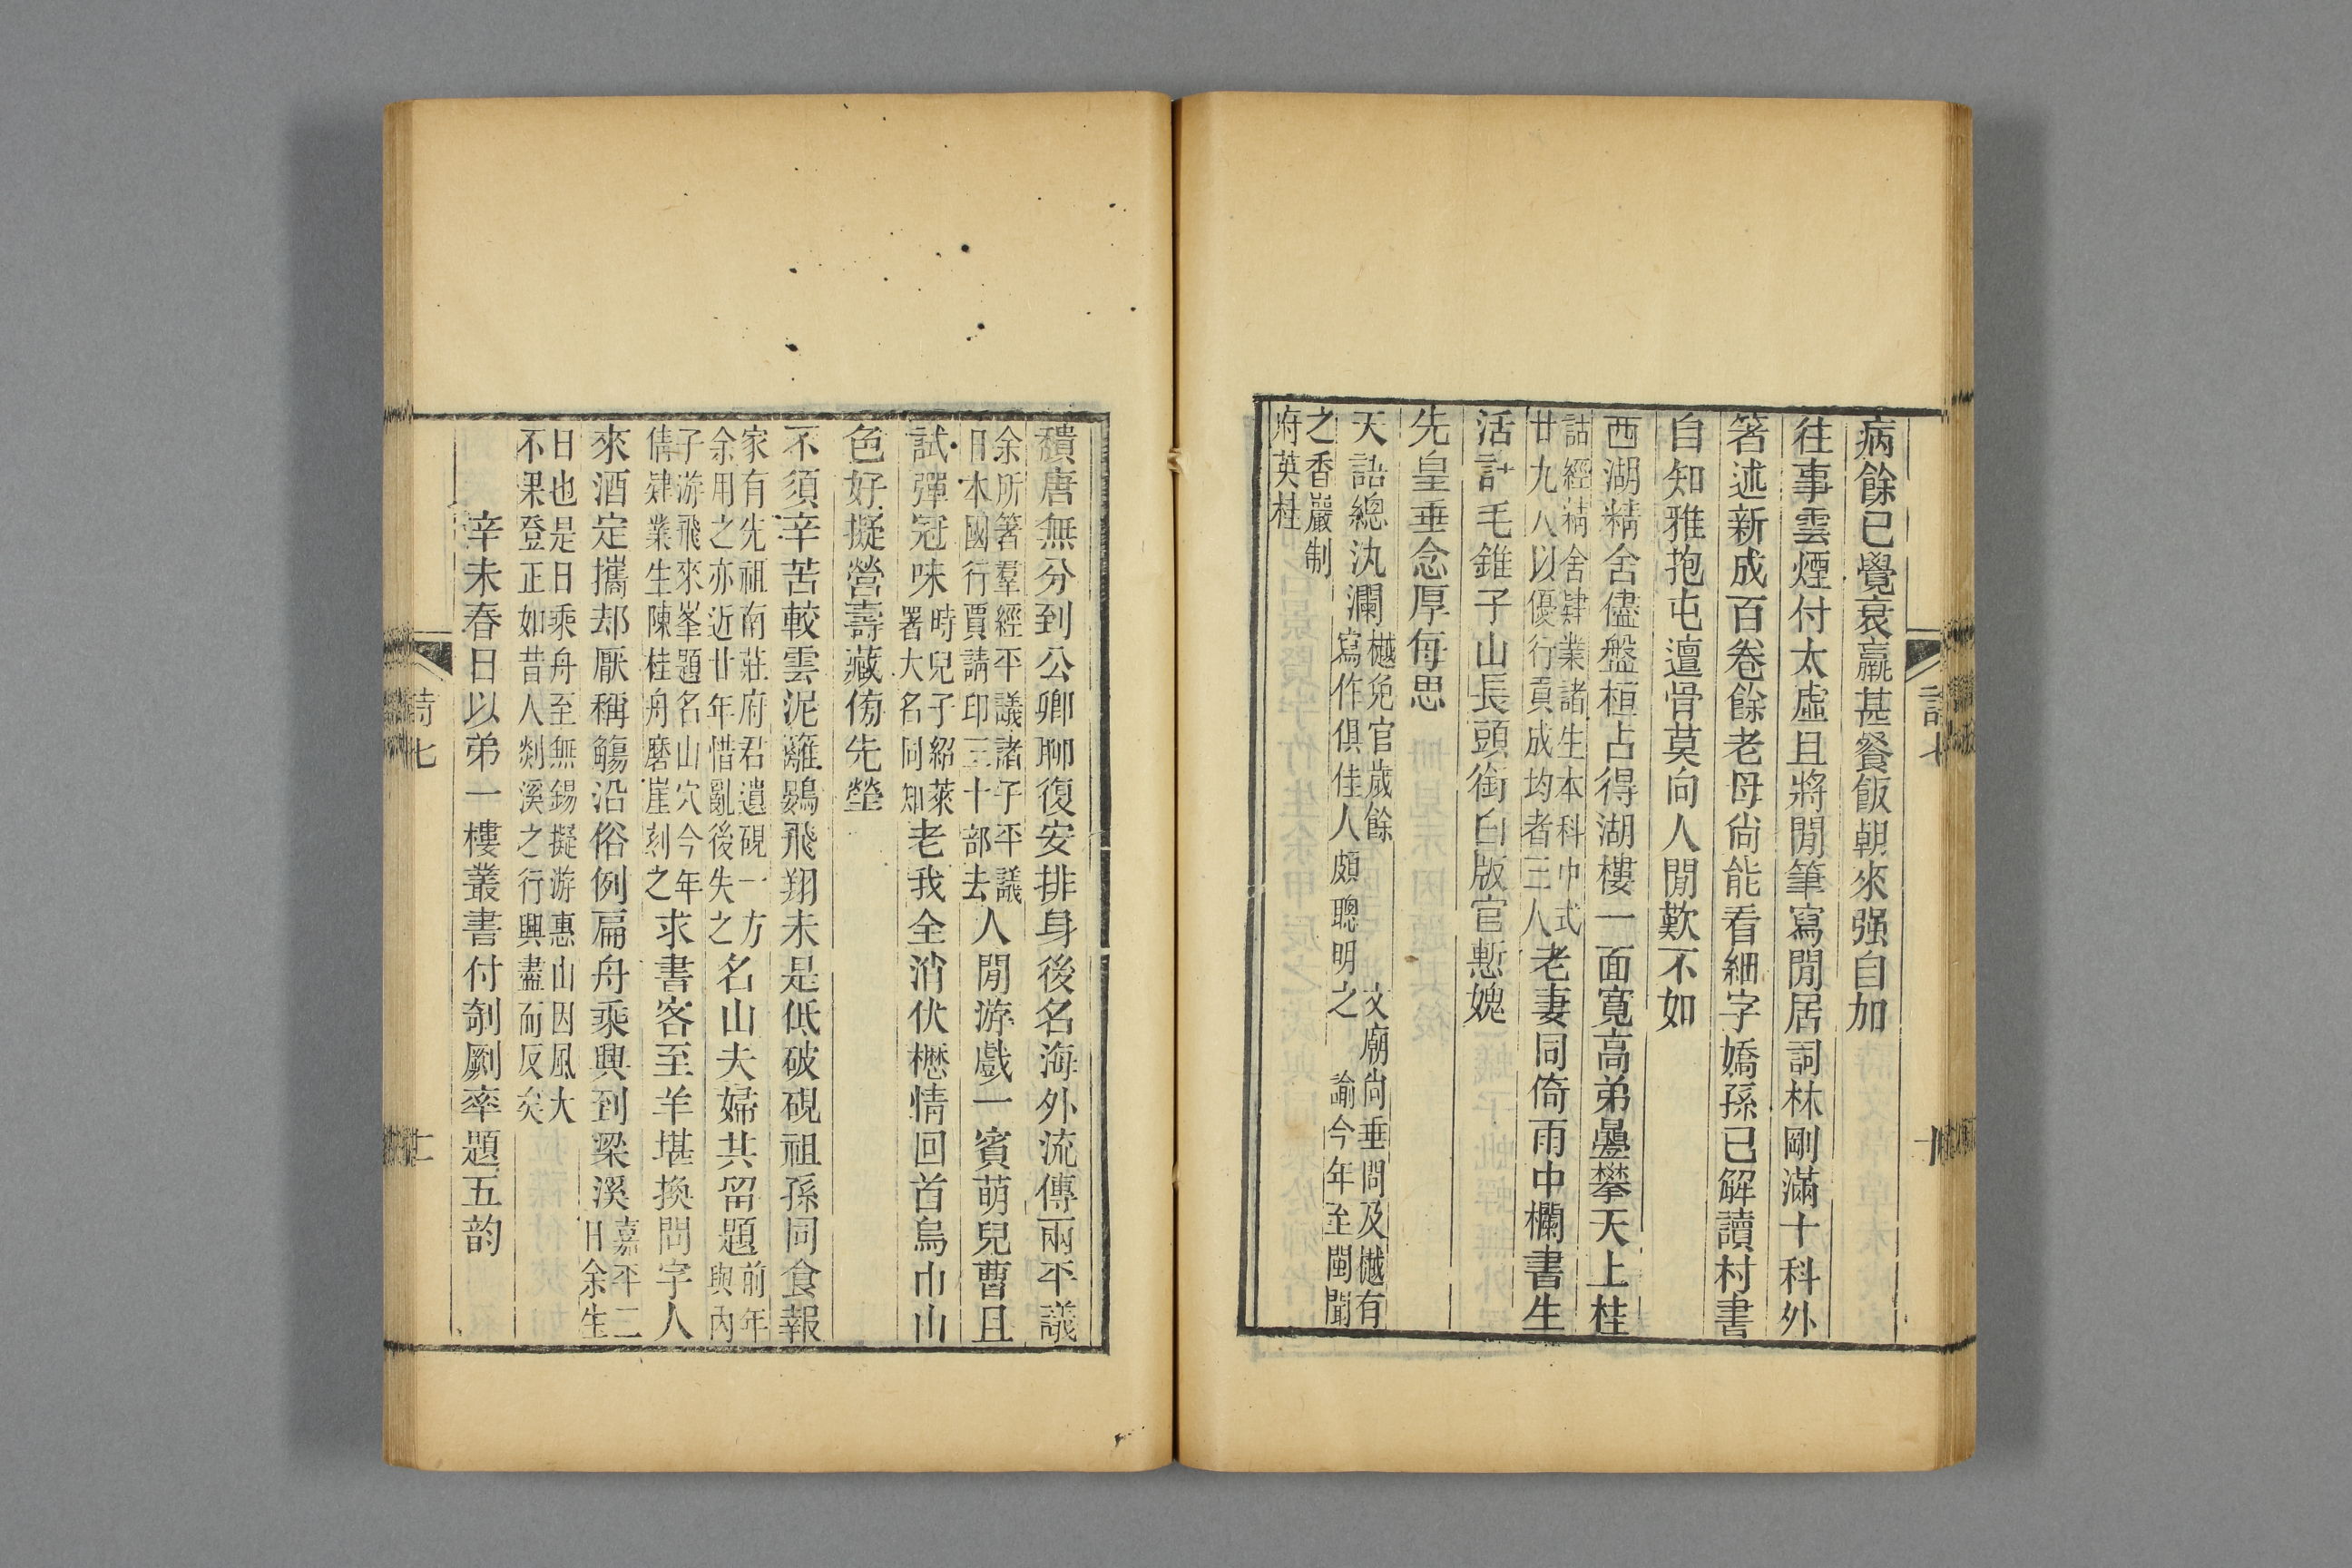 病餘已覺衰羸甚餐飯朝來强自加
往事雲煙付太虛且將閒筆寫閒居詞林剛滿十科外
箸述新成百卷餘老母尙能看細字嬌孫已解讀村書
自知雅抱屯邅骨莫向人閒歎不如
西湖精舍儘盤桓占得湖樓一面寬高弟曡攀天上桂
詁經精舍肄業諸生本科中式
廿九人以優行貢成均者三人老妻同倚雨中欄書生
活計毛錐子山長頭銜白版官慙媿
先皇垂念厚每思
天語總汍瀾樾免官歲餘 文廟尙垂問及樾有
寫作俱佳人頗聰明之 諭今年至閩聞
之香嚴制
府英桂
詩七
十
穨唐無分到公卿聊復安排身後名海外流傳兩平議
余所箸羣經平議諸子平議
日本國行賈請印三十部去人閒游戲一賓萌兒曹且
試彈冠味時兒子紹萊
署大名同知老我全消伏櫪情回首烏巾山
色好擬營壽藏傍先塋
不須辛苦較雲泥籬鷃飛翔未是低破硯祖孫同食報
家有先祖南莊府君遺硯一方
余用之亦近廿年惜亂後失之名山夫婦共留題前年
與內
子游飛來峯題名山穴今年
倩肄業生陳桂舟磨崖刻之求書客至羊堪換問字人
來酒定攜却厭稱觴沿俗例扁舟乘興到梁溪嘉平二
日余生
日也是日乘舟至無錫擬游惠山因風大
不果登正如昔人剡溪之行興盡而反矣
辛未春日以弟一樓叢書付剞劂率題五韵
詩七